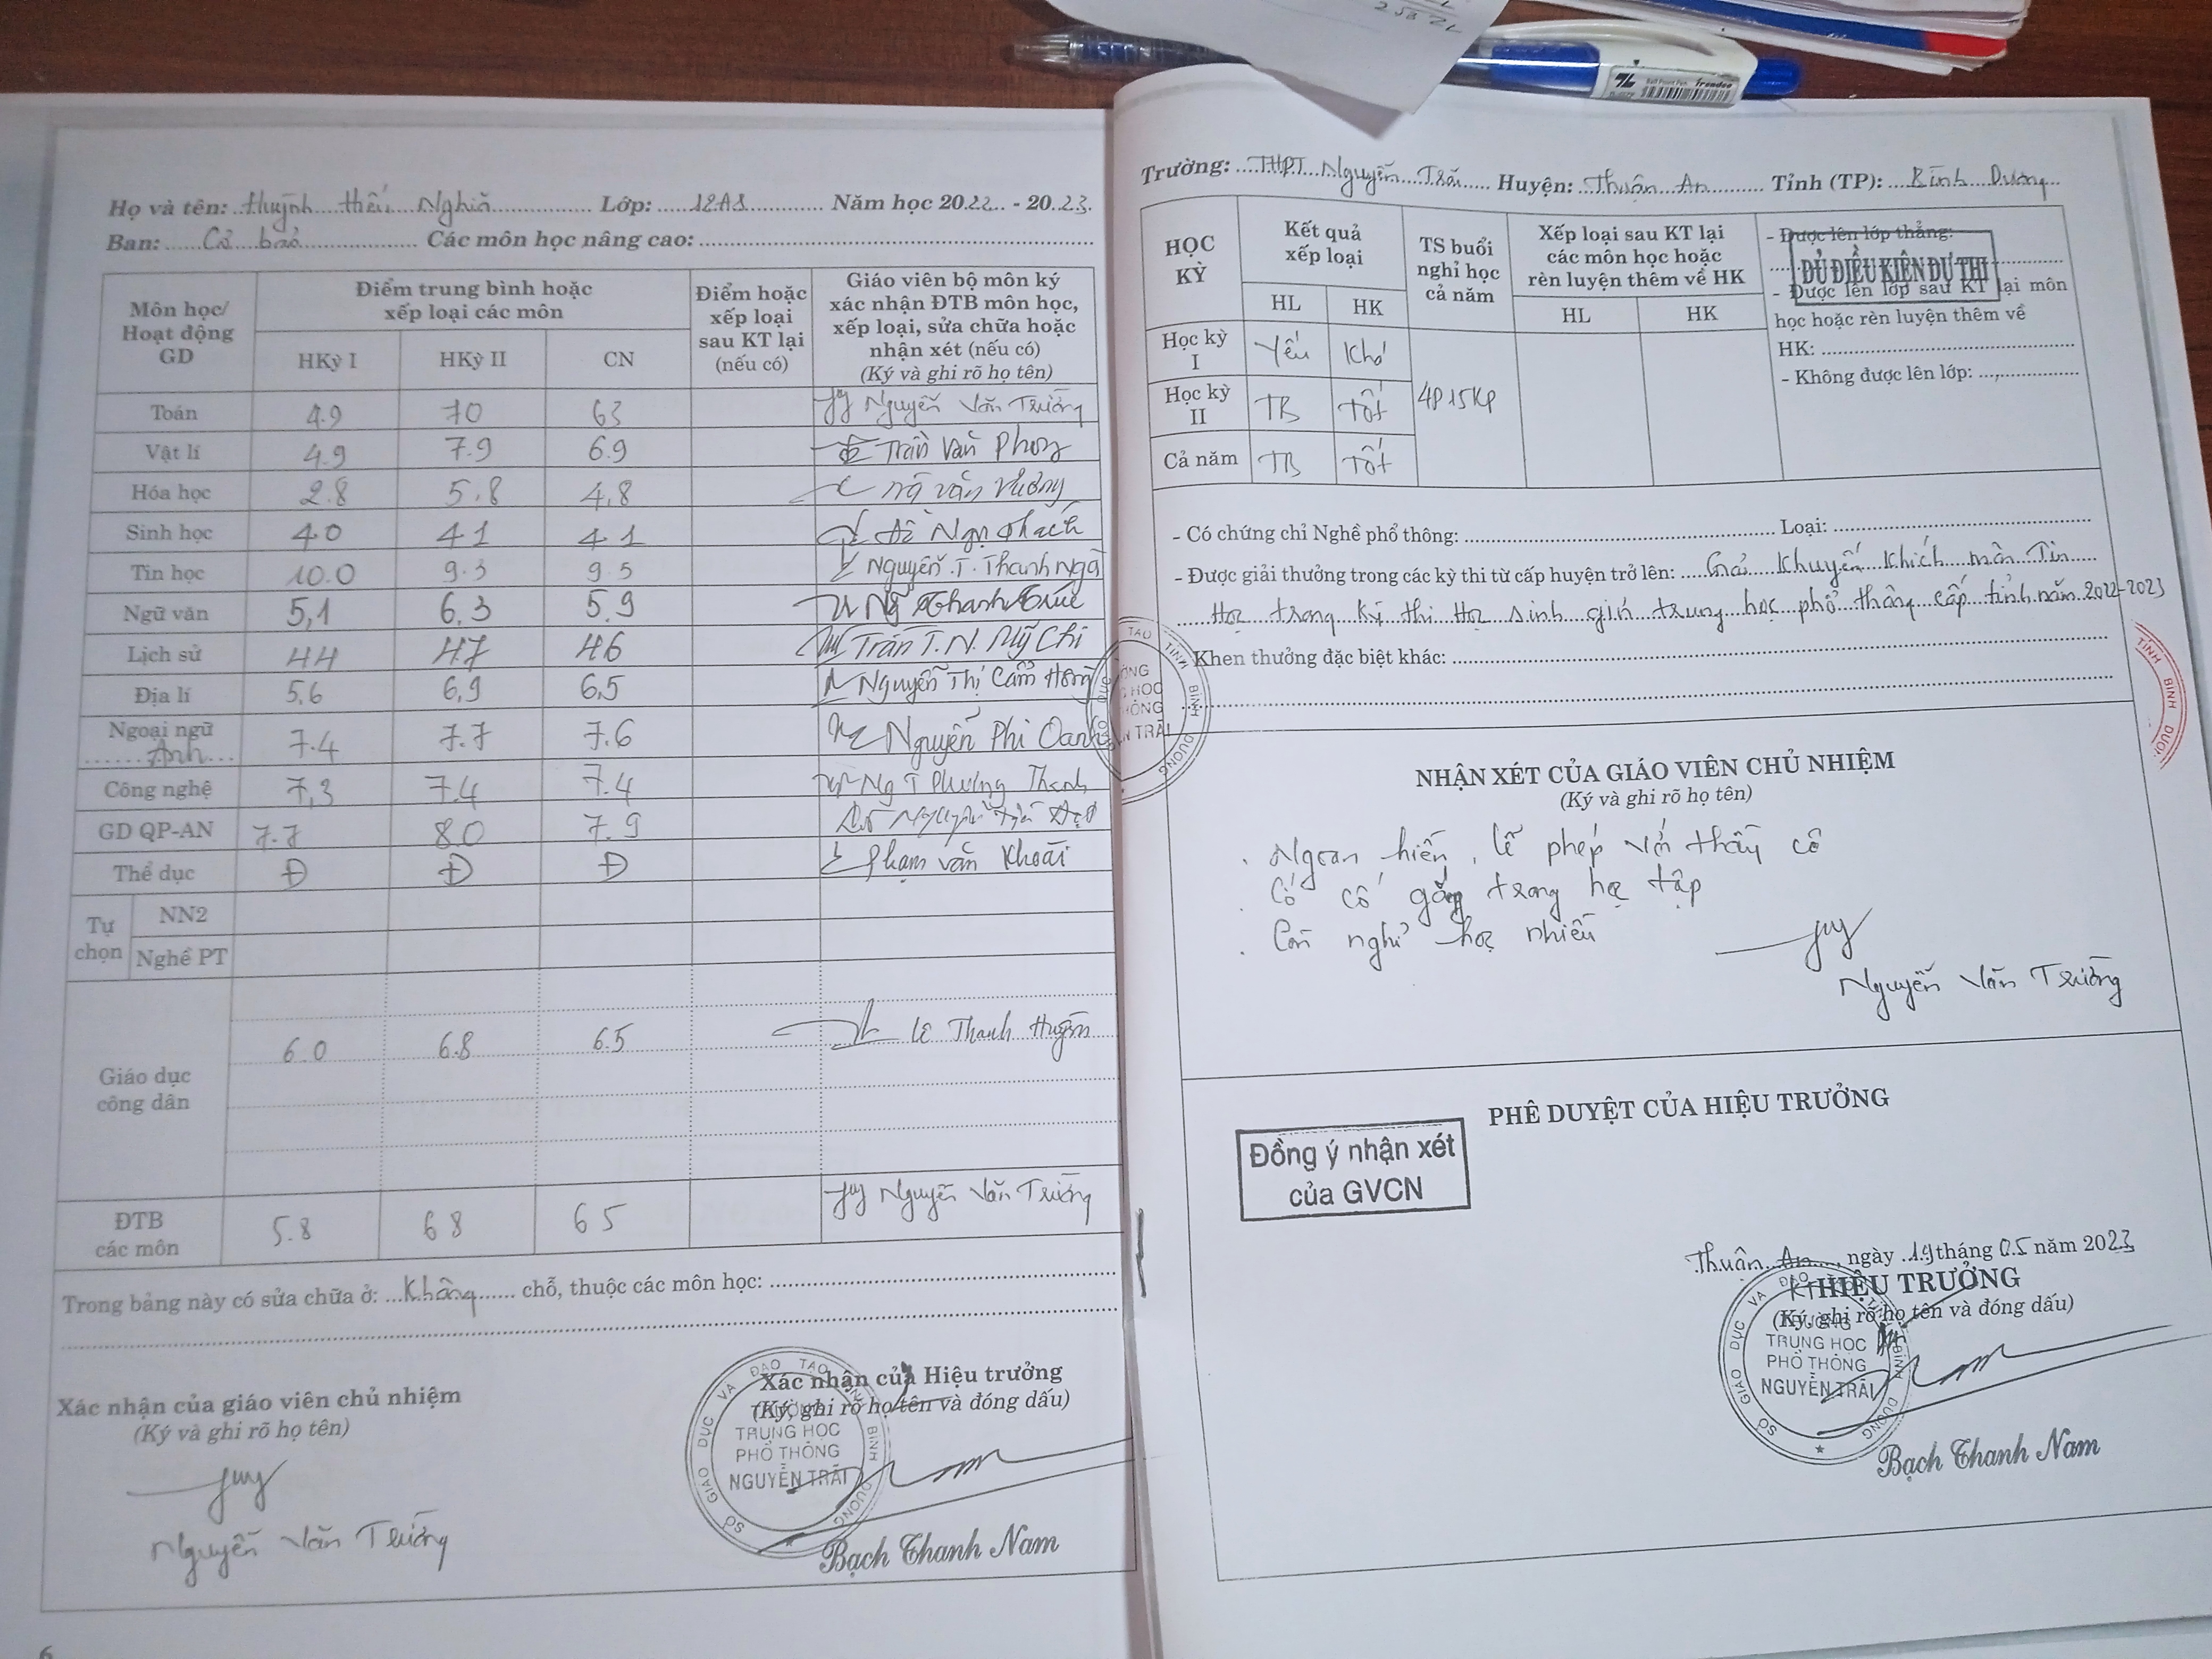 Họ và tên: Huỳnh Hiếu Nghĩa Lớp: 12A8 Năm học 2022 - 2023
Ban: Cơ bản Các môn học nâng cao:
Môn học/ Hoạt động GD
Điểm trung bình hoặc xếp loại các môn
HKỳ I HKỳ II CN
Điểm hoặc xếp loại sau KT lại (nếu có)
Giáo viên bộ môn ký xác nhận ĐTB môn học, xếp loại, sửa chữa hoặc nhận xét (nếu có) (Ký và ghi rõ họ tên)
Toán 4.9 70 63 Nguyễn Văn Trường
Vật lí 4.9 7.9 6.9 Trần Văn Phong
Hóa học 2.8 5.8 4.8 Vương
Sinh học 4.0 4.1 4.1 Thạch
Tin học 10.0 9.3 9.5 Nguyễn.T.Thanh Nga
Ngữ văn 5,1 6,3 5,9 Ng Thanh Trúc
Lịch sử 44 4.7 46 Trần T.N. Mỹ Chi
Địa lí 5,6 6,9 6,5 Nguyễn Thị Cẩm Hồng
Ngoại ngữ Anh 7.4 7.7 7.6 Nguyễn Phi Oanh
Công nghệ 7,3 7.4 7.4 Ng T Phương Thanh
GD QP-AN 7.7 8.0 7.9 Nguyễn
Thể dục Đ Đ Đ Phạm Văn Khoái
Tự chọn NN2
Nghề PT
Giáo dục công dân 6.0 6.8 6.5 Lê Thanh Huyền
ĐTB các môn 5.8 68 65 Nguyễn Văn Trường
Trong bảng này có sửa chữa ở: Không chỗ, thuộc các môn học:
Xác nhận của giáo viên chủ nhiệm
(Ký và ghi rõ họ tên)
Nguyễn Văn Trường
Xác nhận của Hiệu trưởng
(Ký, ghi rõ họ tên và đóng dấu)
SỞ GIÁO DỤC VÀ ĐÀO TẠO TỈNH BÌNH DƯƠNG
TRƯỜNG
TRUNG HỌC
PHỔ THÔNG
NGUYỄN TRÃI
Bạch Thanh Nam
6
Trường: THPT Nguyễn Trãi Huyện: Thuận An Tỉnh (TP): Bình Dương
HỌC KỲ
Kết quả xếp loại
HL HK
TS buổi nghỉ học cả năm
Xếp loại sau KT lại các môn học hoặc rèn luyện thêm về HK
HL HK
Học kỳ I Yếu Khá
Học kỳ II TB Tốt
Cả năm TB Tốt
4P 15KP
- Được lên lớp thẳng:
ĐỦ ĐIỀU KIỆN DỰ THI
- Được lên lớp sau KT lại môn
học hoặc rèn luyện thêm về
HK:
- Không được lên lớp:
- Có chứng chỉ Nghề phổ thông: Loại:
- Được giải thưởng trong các kỳ thi từ cấp huyện trở lên: Giải Khuyến Khích môn Tin
Học trong Kỳ thi Học sinh giỏi trung học phổ thông cấp tỉnh năm 2022-2023
Khen thưởng đặc biệt khác:
TỈNH BÌNH DƯƠNG
NHẬN XÉT CỦA GIÁO VIÊN CHỦ NHIỆM
(Ký và ghi rõ họ tên)
. Ngoan hiền, lễ phép với thầy cô
. Có cố gắng trong học tập
. Còn nghỉ học nhiều
Nguyễn Văn Trường
PHÊ DUYỆT CỦA HIỆU TRƯỞNG
Đồng ý nhận xét
của GVCN
Thuận An, ngày 19 tháng 05 năm 2023
KT HIỆU TRƯỞNG
(Ký, ghi rõ họ tên và đóng dấu)
SỞ GIÁO DỤC VÀ ĐÀO TẠO TỈNH BÌNH DƯƠNG
TRƯỜNG
TRUNG HỌC
PHỔ THÔNG
NGUYỄN TRÃI
Bạch Thanh Nam
Ball Point Pen Trendee